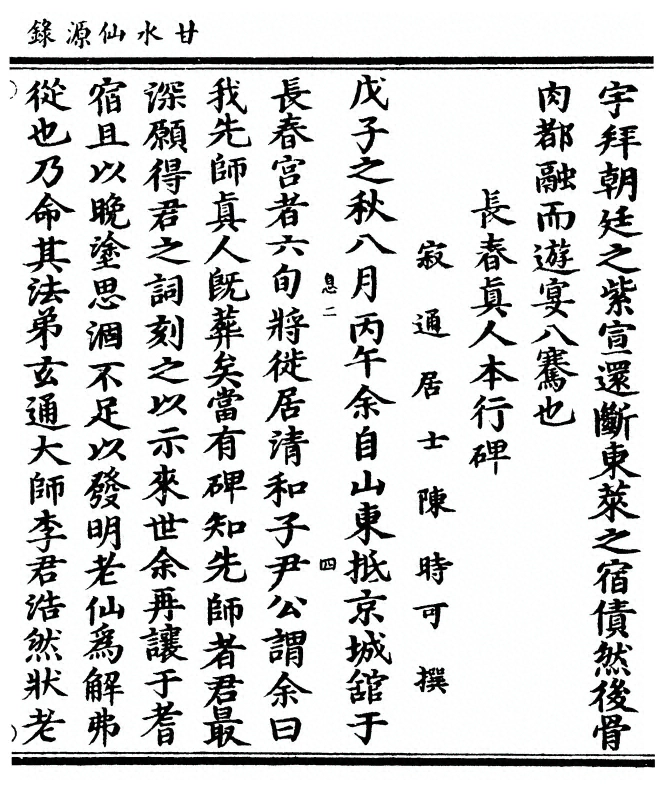 甘水仙源錄
宇拜朝廷之紫宣還斷東萊之宿債然後骨
肉都融而遊宴八騫也
長春眞人本行碑
寂通居士陳時可撰
戊子之秋八月丙午余自山東抵京城舘于
息二
四
長春宮者六旬將徙居清和子尹公謂余曰
我先師眞人旣葬矣當有碑知先師者君最
深願得君之詞刻之以示來世余再讓于耆
宿且以晚塗思涸不足以發明老仙爲解弗
從也乃命其法弟玄通大師李君浩然狀老